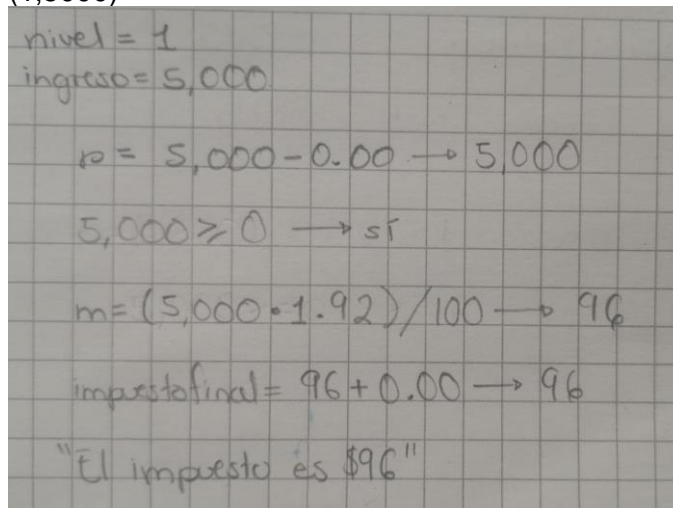 nivel = 1
ingreso = 5,000
p = 5,000 - 0.00 → 5,000
5,000 ≥ 0 → sí
m = (5,000 • 1.92) / 100 → 96
impuestofinal = 96 + 0.00 → 96
"El impuesto es $96"